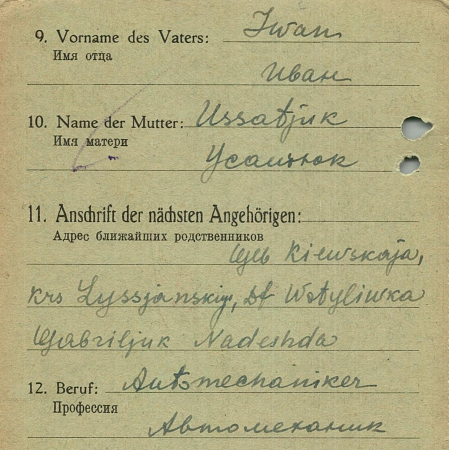 9. Vorname des Vaters: Iwan
Имя отца
Иван
10. Name der Mutter: Ussatjuk
Имя матери
Усатюк
11. Anschrift der nächsten Angehörigen:
Адрес ближайших родственников
Geb Kiewskaja,
Krs Lyssjanskij, Df Wotyliwka
Gabriljuk Nadeshda
12. Beruf: Automechaniker
Профессия
Автомеханик